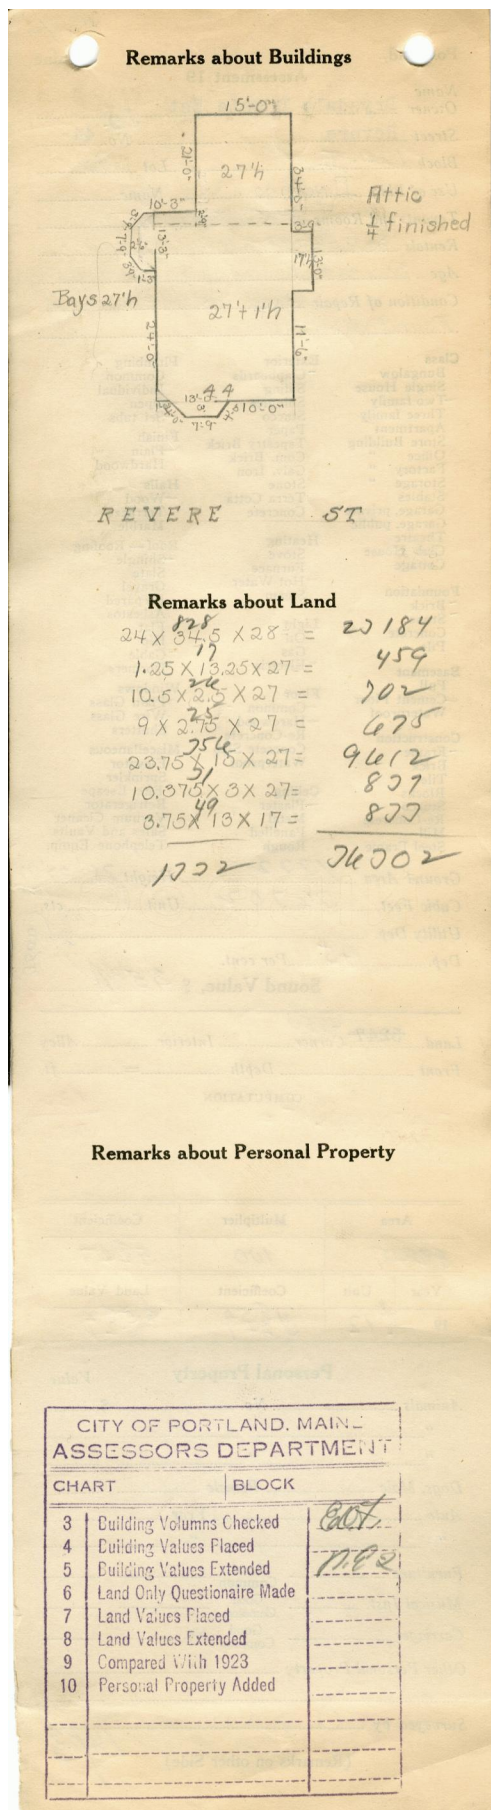 Remarks about Buildings
15'-0"
21'-0"
27'h
34'-6"
Attic
1/4 finished
10'-3"
3'-9"
7'-9"
13'-3"
17'h
13'-0"
3'9"
1'-3"
Bays 27'h
27'+1'h
24'-0"
11'-6"
4 4
13'-0"
2
10'-0"
7'-9"
REVERE ST
Remarks about Land
828
24 X 34.5 X 28 = 23184
17
1.25 X 13.25 X 27 = 459
26
10.5 X 2.5 X 27 = 702
25
9 X 2.75 X 27 = 675
356
23.75 X 15 X 27 = 9612
31
10.375 X 3 X 27 = 837
49
3.75 X 13 X 17 = 833
1332 36302
Remarks about Personal Property
CITY OF PORTLAND, MAINE
ASSESSORS DEPARTMENT
CHART BLOCK
3 Building Volumns Checked
4 Building Values Placed
5 Building Values Extended
6 Land Only Questionaire Made
7 Land Values Placed
8 Land Values Extended
9 Compared With 1923
10 Personal Property Added